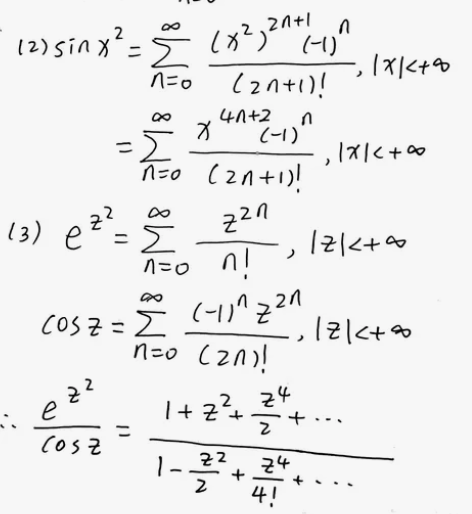 (2) sin x² = ∑_{n=0}^{∞} (x²)^{2n+1} (-1)^n / (2n+1)! , |x|<+∞
= ∑_{n=0}^{∞} x^{4n+2} (-1)^n / (2n+1)! , |x|<+∞
(3) e^{z²} = ∑_{n=0}^{∞} z^{2n} / n! , |z|<+∞
cos z = ∑_{n=0}^{∞} (-1)^n z^{2n} / (2n)! , |z|<+∞
∴ e^{z²} / cos z = (1 + z² + z⁴/2 + ⋯) / (1 - z²/2 + z⁴/4! + ⋯)